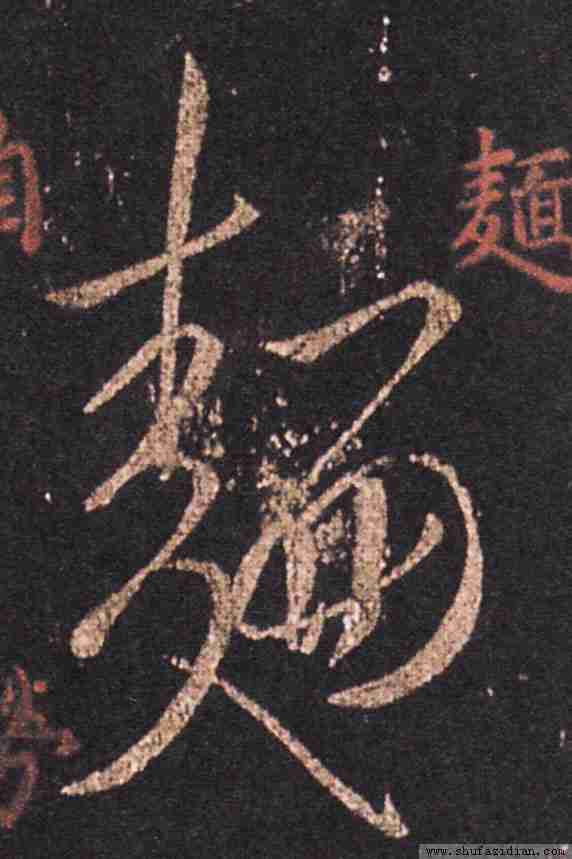 麺
麺
www.shufazidian.com